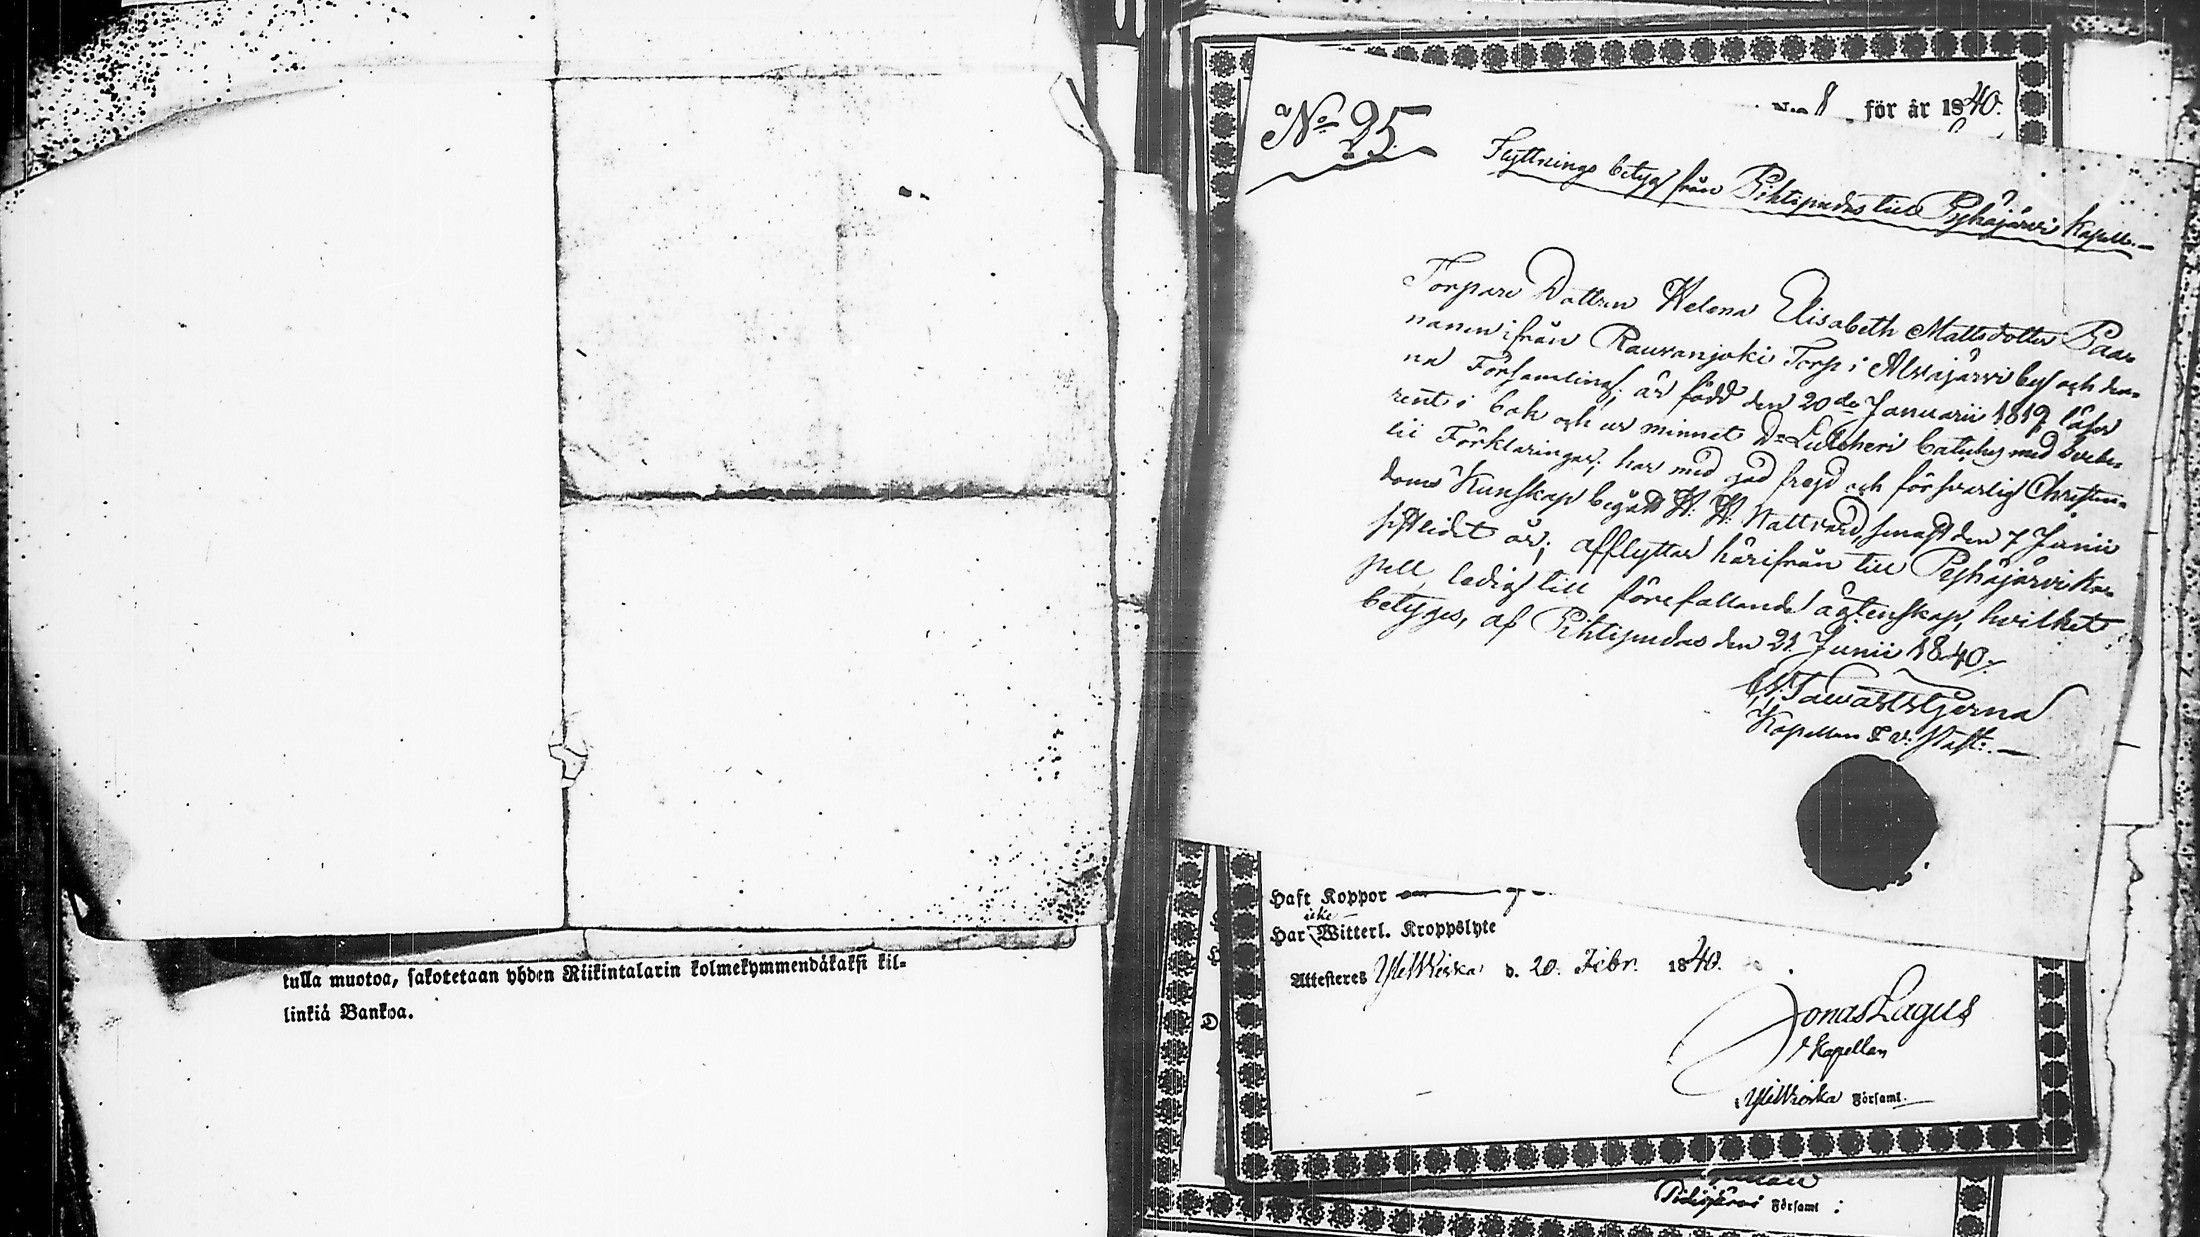 tulla muotoa, sakotetaan yhden Riikintalarin kolmekymmendäkaksi kil-
linkiä Bankoa.
No 8 för år 1840.
No 25.
Flyttnings betyg från Pihtipudas till Pyhäjärvi Kapell.
Torpare Dottren Helena Elisabeth Mattsdotter Paa-
nanen ifrån Rauvanjoki Torp i Alvajärvi by och den-
na Församling; är född den 20de Januarii 1819, läser
rent i bok och ur minnet Dr Lutheri Catechs med Svebe-
lii Förklaringar; har med god frejd och försvarlig Christen-
doms Kunskap begått H. H. Nattvard, senast den 7 Junii
sistledit år; afflyttar härifrån till Pyhäjärvi Ka-
pell, ledig till förefallande ägtenskap, hvilket
betyges, af Pihtipudas den 21 Junii 1840.
Tawaststjerna
Kapellan
Haft Koppor
icke
Har Witterl. Kroppslyte
Attesteres YliWieska d. 20. Febr. 1840.
Jonas Lagus
Kapellan
i YliWieska Församl.
Pidisjärvi Församl: